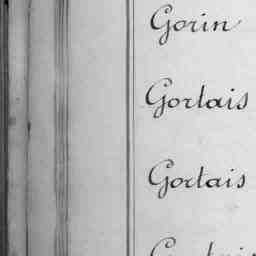 Gorin
Gortais
Gortais